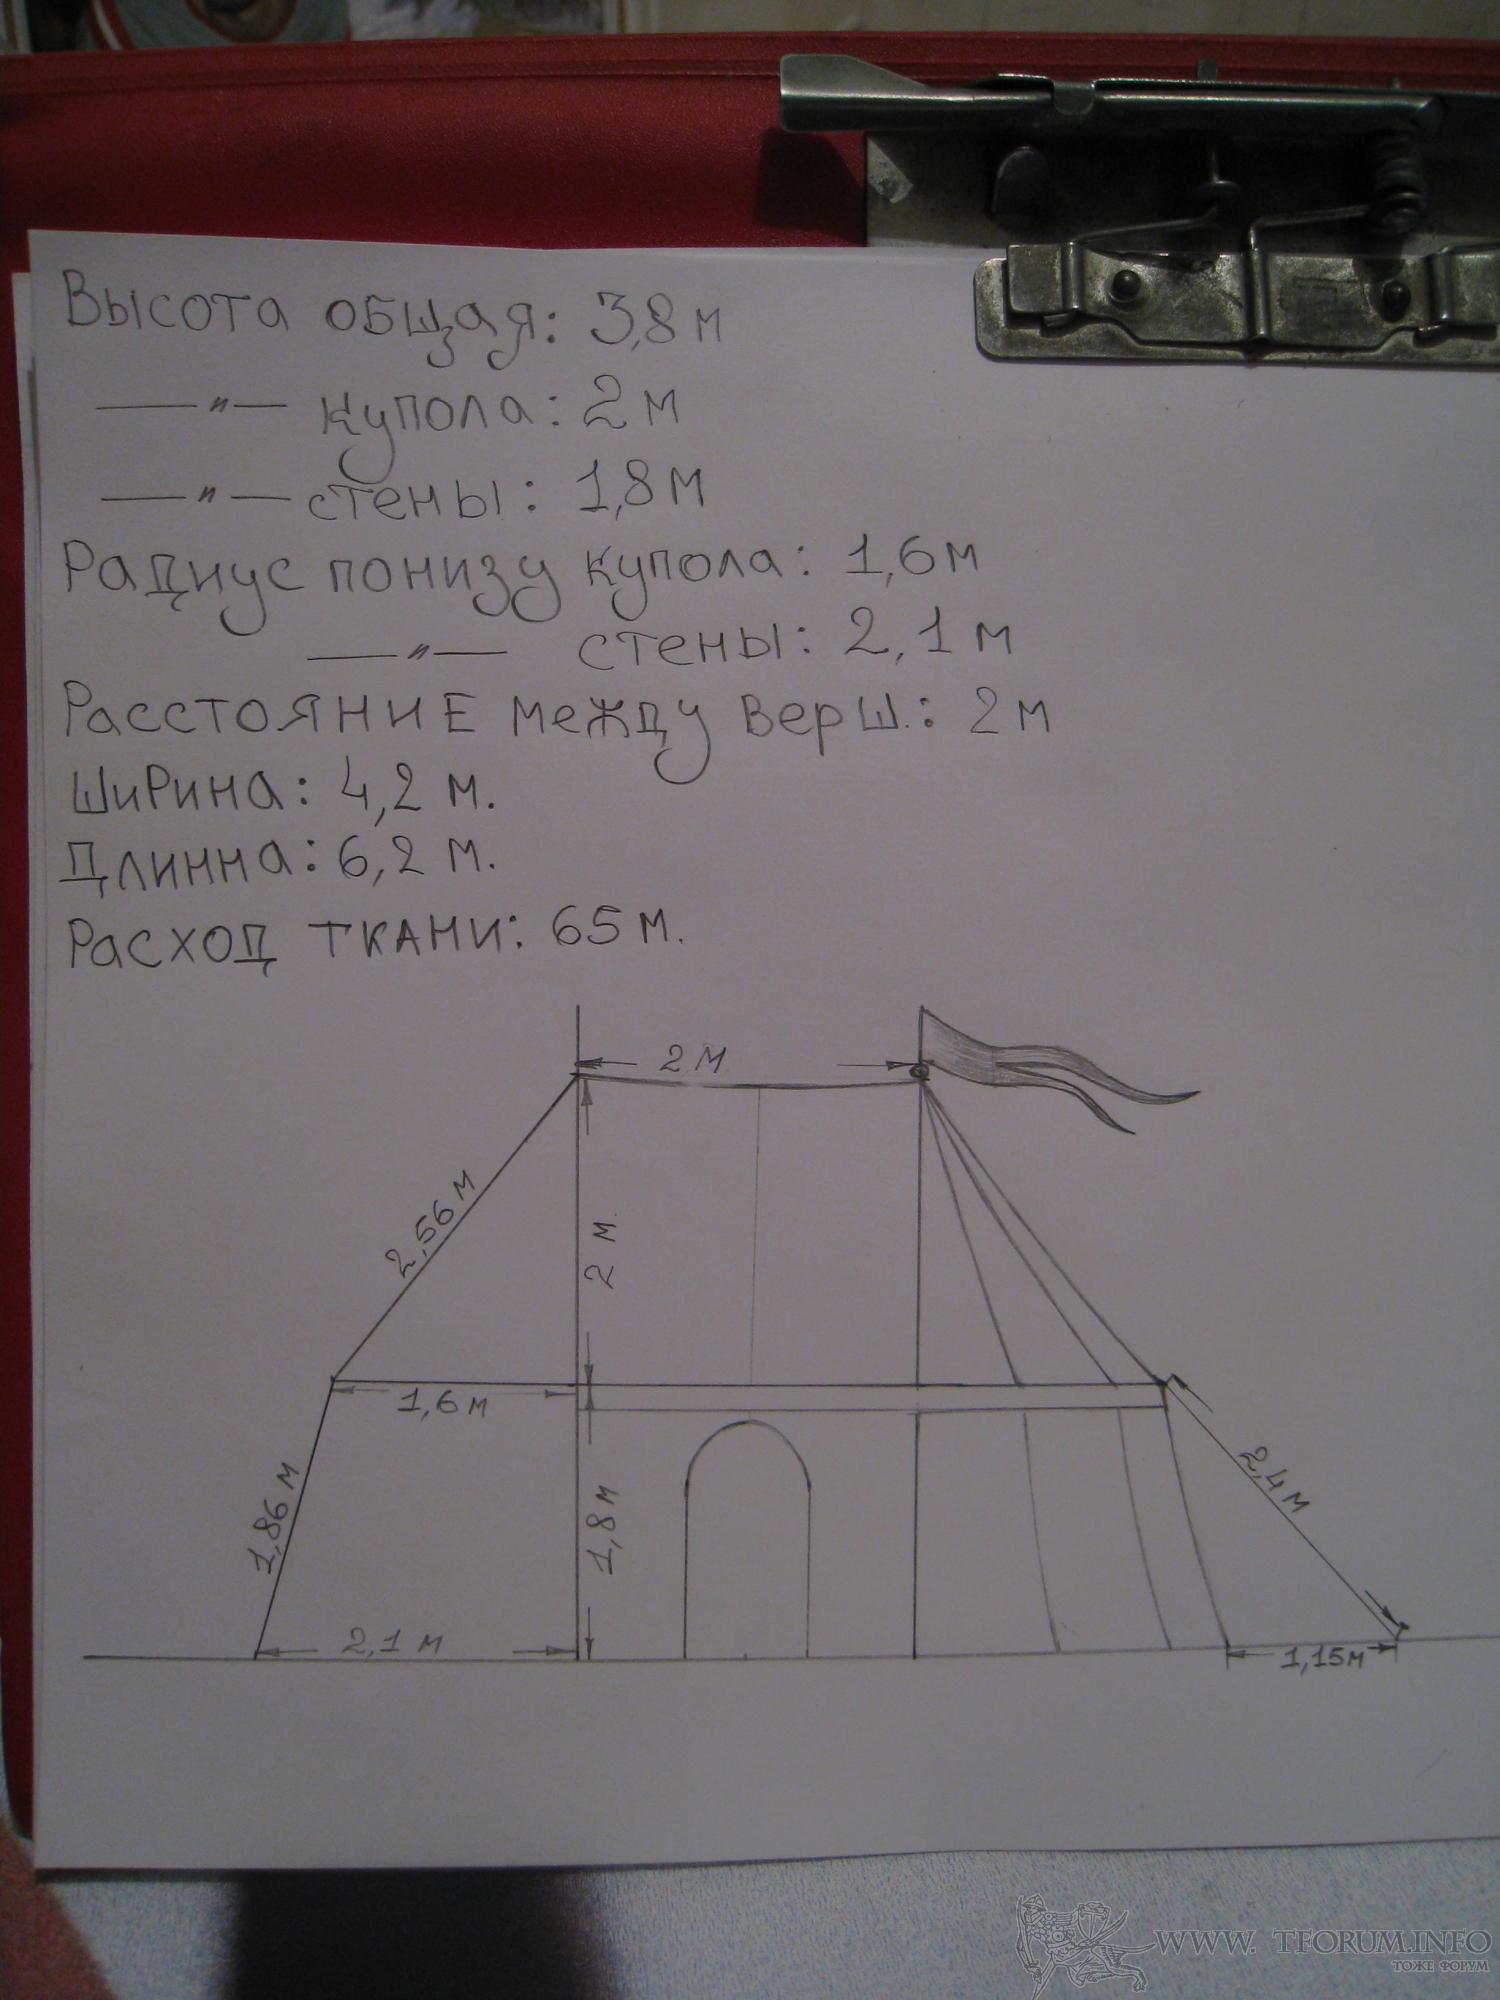 Высота общая: 3,8 м
—"— купола: 2 м
—"— стены: 1,8 м
Радиус понизу купола: 1,6 м
—"— стены: 2,1 м
Расстояние между верш.: 2 м
Ширина: 4,2 м.
Длинна: 6,2 м.
Расход ткани: 65 м.
2 м
2,56 м
2 м.
1,6 м
2,4 м
1,86 м
1,8 м
2,1 м
1,15 м
WWW. TFORUM.INFO
ТОЖЕ ФОРУМ